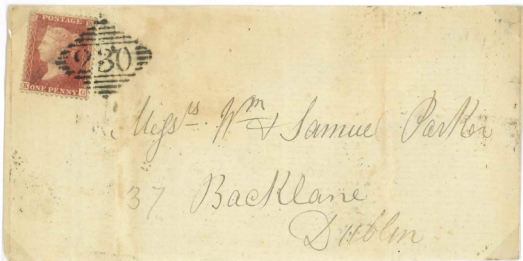 POSTAGE
ONE PENNY
230
Messrs. Wm & Samuel Parker
37 Backlane
Dublin